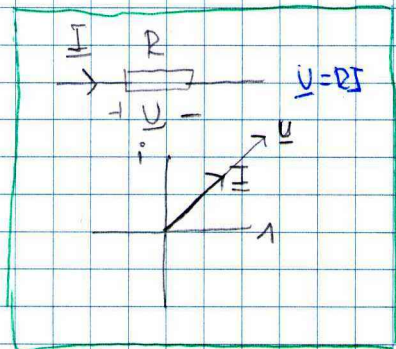 I R
U = RI
+ U -
i U
I
1